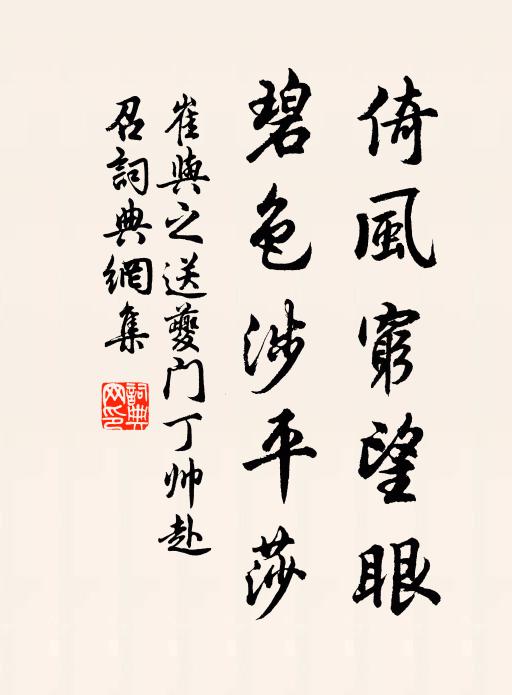 倚風窮望眼
碧色涉平莎
崔與之送夔门丁帅赴
召詞典網集
詞典网印